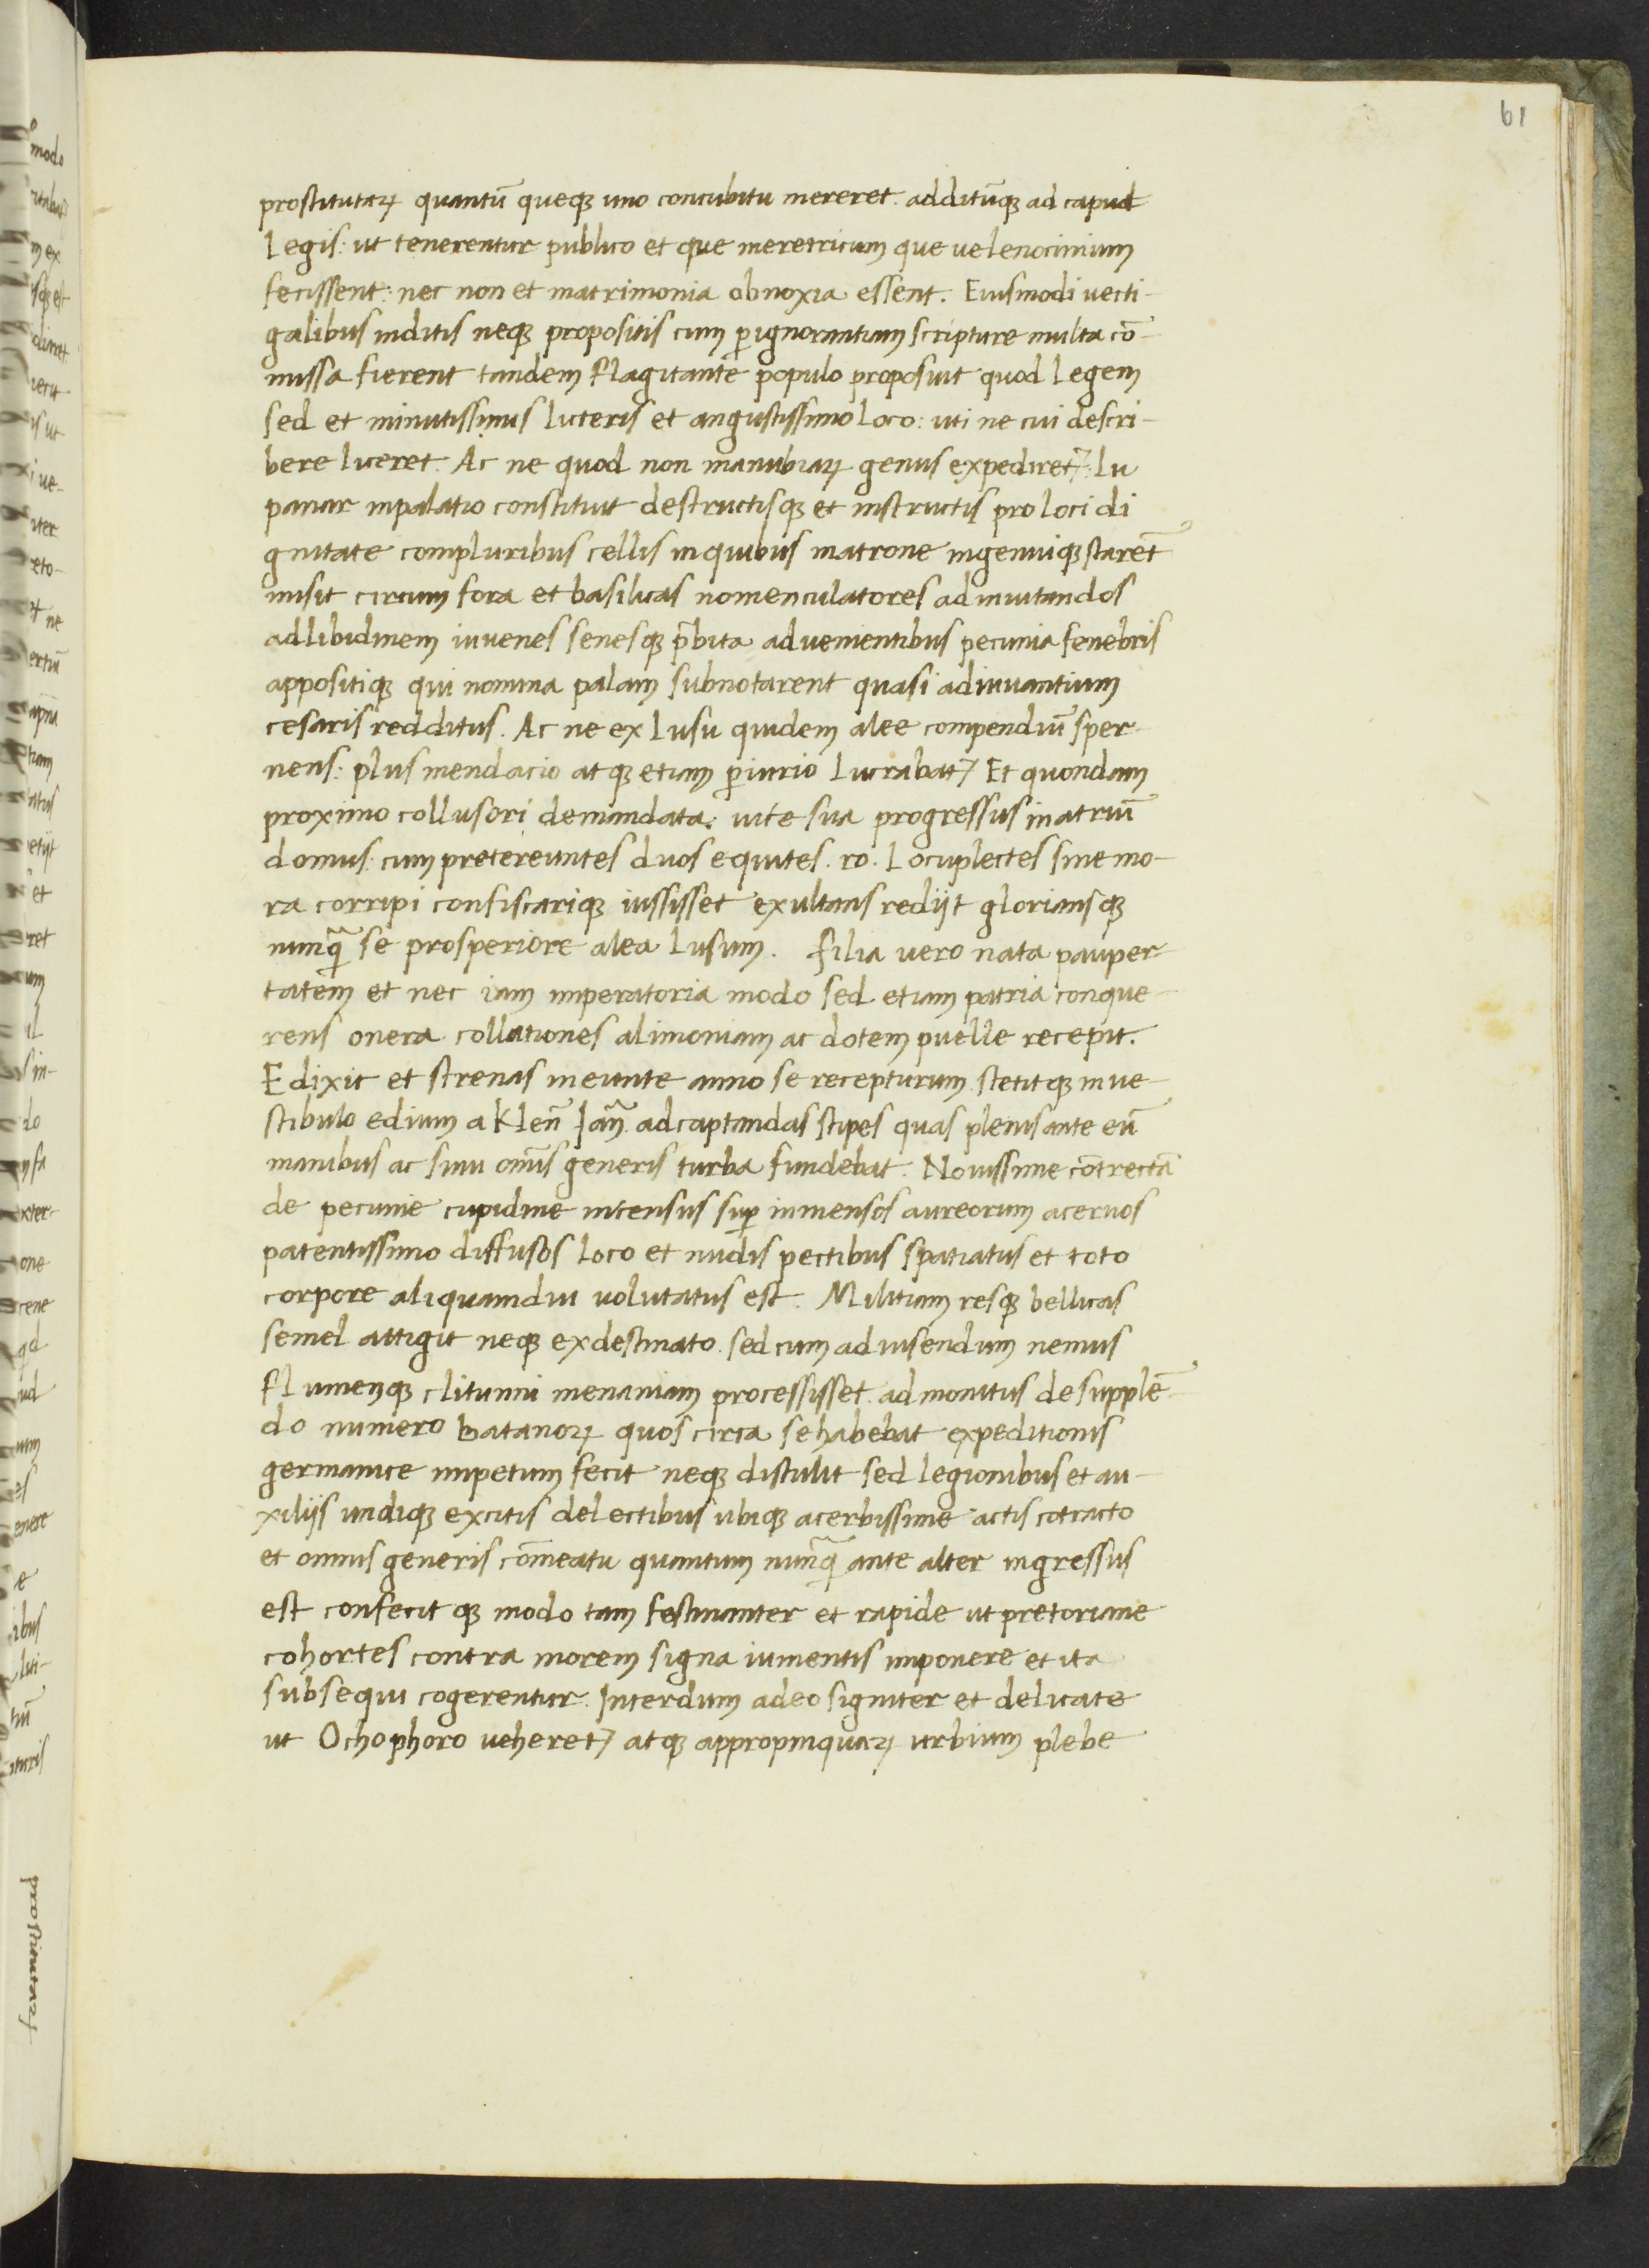 61
prostitutaꝝ quantū queqꝫ uno concubitu mereret. additūqꝫ ad capud
Legis: ut tenerentur publico et que meretricium que ue lenocinium
fecissent: nec non et matrimonia obnoxia essent. Eiusmodi uecti-
galibus inditis neqꝫ propositis cum ꝑ ignorantiam scripture multa cō-
missa fierent tandem flagitante populo proposuit quod Legem
sed et minutissimis litteris et angustissimo Loco: uti ne cui descri-
bere liceret. Ac ne quod non manubiaꝝ genus expediret⁊: Lu
panar in palatio constituit destructisqꝫ et instructis pro loci di
gnitate compluribus cellis in quibus matrone ingenuiqꝫ starēt
misit circum fora et basilicas nomenculatores ad inuitandos
ad libidinem iuuenes senesqꝫ p̄bita aduenientibus pecunia fenebris
appositiqꝫ qui nomina palam subnotarent quasi adiuuantium
cesaris redditus. Ac ne ex Lusu quidem alee compendiū sper-
nens: plus mendacio atqꝫ etiam ꝑiurio Lucrabat⁊ Et quondam
proximo collusori demandata: uite sua progressus in atriū
domus: cum pretereuntes duos equites. ro. Locuplectes sine mo-
ra corripi confiscariqꝫ iussisset exultans redijt gloriansqꝫ
nunq̄ se prosperiore alea Lusum. filia uero nata pauper-
tatem et nec iam imperatoria modo sed etiam patria conque-
rens onera collationes alimoniam ac dotem puelle recepit.
Edixit et strenas ineunte anno se recepturum stetitqꝫ in ue-
stibulo edium a Klen̄ Ian̄ ad captandas stipes quas plenis ante eū
manibus ac sinu omīs generis turba fundebat. Nouissime cōtrectā
de pecunie cupidine incensus suꝑ inmensos aureorum aceruos
patentissimo diffusos Loco et nudis pectibus spatiatus et toto
corpore aliquamdiu uolutatus est. Militiam resqꝫ bellicas
semel attigit neqꝫ ex destinato. sed cum ad uisendum nemus
flumenqꝫ clitumni menaniam processisset. admonitus de supplē-
do numero Batanoꝝ quos circa se habebat expeditionis
germanice impetum fecit neqꝫ distulit sed legionibus et au-
xilijs undiqꝫ excitis delectibus ubiqꝫ acerbissime actis cotracto
et omnis generis cōmeatu quantum nunq̄ ante alter ingressus
est confecit qꝫ modo tam festinanter et rapide ut pretoriane
cohortes contra morem signa iumentis imponere et ita
subsequi cogerentur. Interdum adeo signiter et delicate
ut Ochophoro ueheret⁊ atqꝫ appropinquaꝝ urbium plebe
prostitutaꝝ